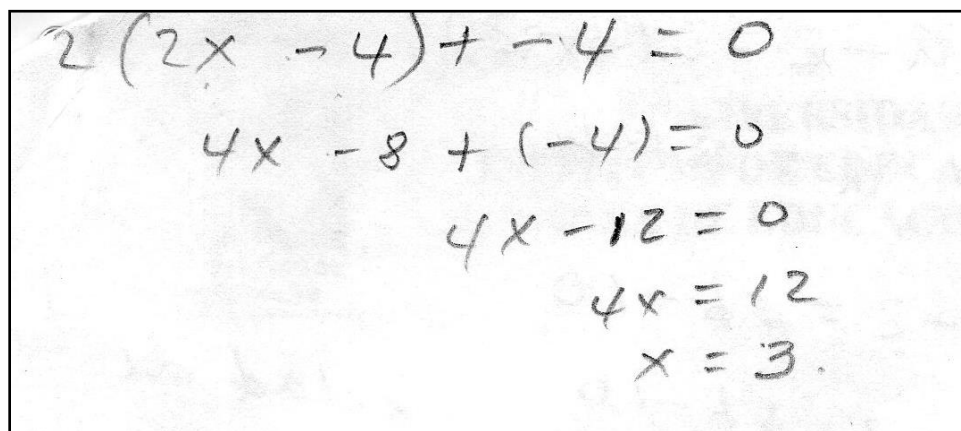 2(2x - 4) + -4 = 0
4x - 8 + (-4) = 0
4x - 12 = 0
4x = 12
x = 3.